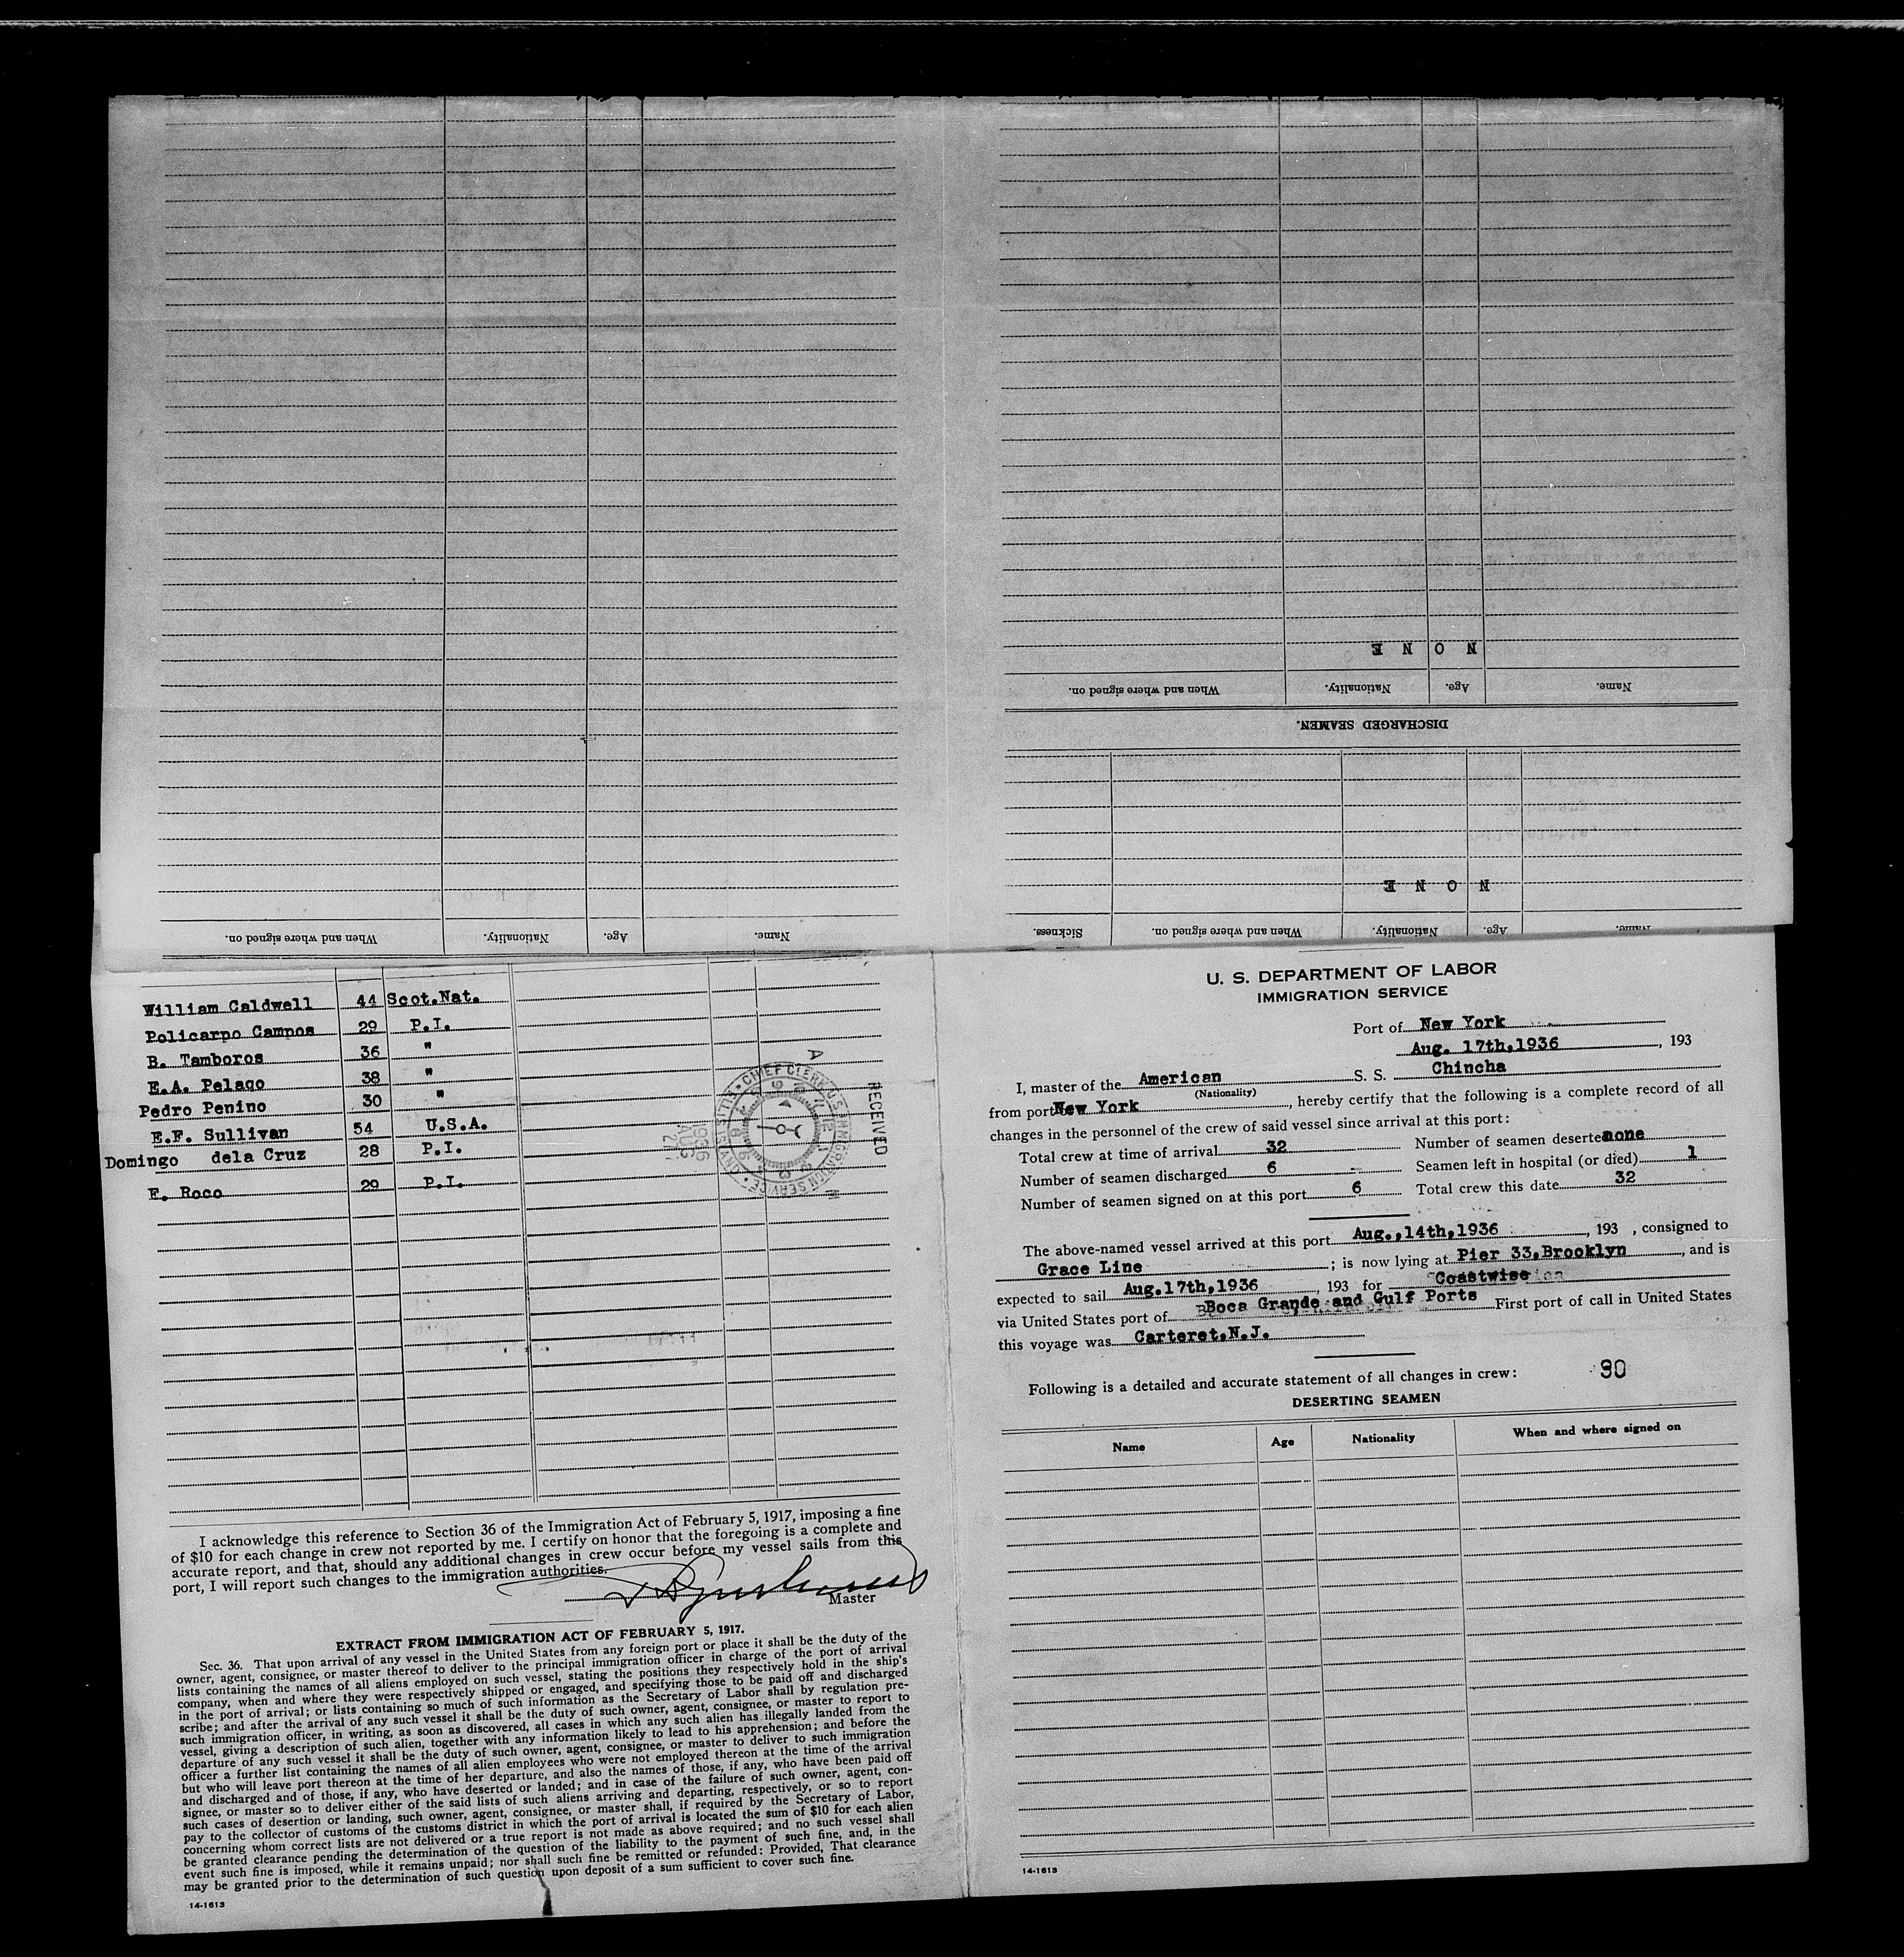 When and where signed on. Nationality. Age. Name.
N O N E
Name. Age. Nationality. When and where signed on.
DISCHARGED SEAMEN.
N O N E
Name. Age. Nationality. When and where signed on. Sickness.
William Caldwell 44 Scot.Nat.
Policarpo Campos 29 P.I.
B. Tamboros 36 "
E.A. Pelago 38 "
Pedro Penino 30 "
E.F. Sullivan 54 U.S.A.
Domingo dela Cruz 28 P.I.
F. Roco 29 P.I.
RECEIVED
CHIEF CLERK
1936 AUG 21
I acknowledge this reference to Section 36 of the Immigration Act of February 5, 1917, imposing a fine
of $10 for each change in crew not reported by me. I certify on honor that the foregoing is a complete and
accurate report, and that, should any additional changes in crew occur before my vessel sails from this
port, I will report such changes to the immigration authorities.
Master
EXTRACT FROM IMMIGRATION ACT OF FEBRUARY 5, 1917.
Sec. 36. That upon arrival of any vessel in the United States from any foreign port or place it shall be the duty of the
owner, agent, consignee, or master thereof to deliver to the principal immigration officer in charge of the port of arrival
lists containing the names of all aliens employed on such vessel, stating the positions they respectively hold in the ship's
company, when and where they were respectively shipped or engaged, and specifying those to be paid off and discharged
in the port of arrival; or lists containing so much of such information as the Secretary of Labor shall by regulation pre-
scribe; and after the arrival of any such vessel it shall be the duty of such owner, agent, consignee, or master to report to
such immigration officer, in writing, as soon as discovered, all cases in which any such alien has illegally landed from the
vessel, giving a description of such alien, together with any information likely to lead to his apprehension; and before the
departure of any such vessel it shall be the duty of such owner, agent, consignee, or master to deliver to such immigration
officer a further list containing the names of all alien employees who were not employed thereon at the time of the arrival
but who will leave port thereon at the time of her departure, and also the names of those, if any, who have been paid off
and discharged and of those, if any, who have deserted or landed; and in case of the failure of such owner, agent, con-
signee, or master so to deliver either of the said lists of such aliens arriving and departing, respectively, or so to report
such cases of desertion or landing, such owner, agent, consignee, or master shall, if required by the Secretary of Labor,
pay to the collector of customs of the customs district in which the port of arrival is located the sum of $10 for each alien
concerning whom correct lists are not delivered or a true report is not made as above required; and no such vessel shall
be granted clearance pending the determination of the question of the liability to the payment of such fine, and, in the
event such fine is imposed, while it remains unpaid; nor shall such fine be remitted or refunded: Provided, That clearance
may be granted prior to the determination of such question upon deposit of a sum sufficient to cover such fine.
14-1613
U. S. DEPARTMENT OF LABOR
IMMIGRATION SERVICE
Port of New York
Aug. 17th,1936, 193
I, master of the American S. S. Chincha
(Nationality)
from port New York, hereby certify that the following is a complete record of all
changes in the personnel of the crew of said vessel since arrival at this port:
Total crew at time of arrival 32 Number of seamen deserte none
Number of seamen discharged 6 Seamen left in hospital (or died) 1
Number of seamen signed on at this port 6 Total crew this date 32
The above-named vessel arrived at this port Aug.,14th,1936, 193 , consigned to
Grace Line ; is now lying at Pier 33,Brooklyn, and is
expected to sail Aug.17th,1936, 193 for Coastwise
via United States port of Boca Grande and Gulf Ports First port of call in United States
this voyage was Carteret.N.J.
Following is a detailed and accurate statement of all changes in crew: 90
DESERTING SEAMEN
Name Age Nationality When and where signed on
14-1613